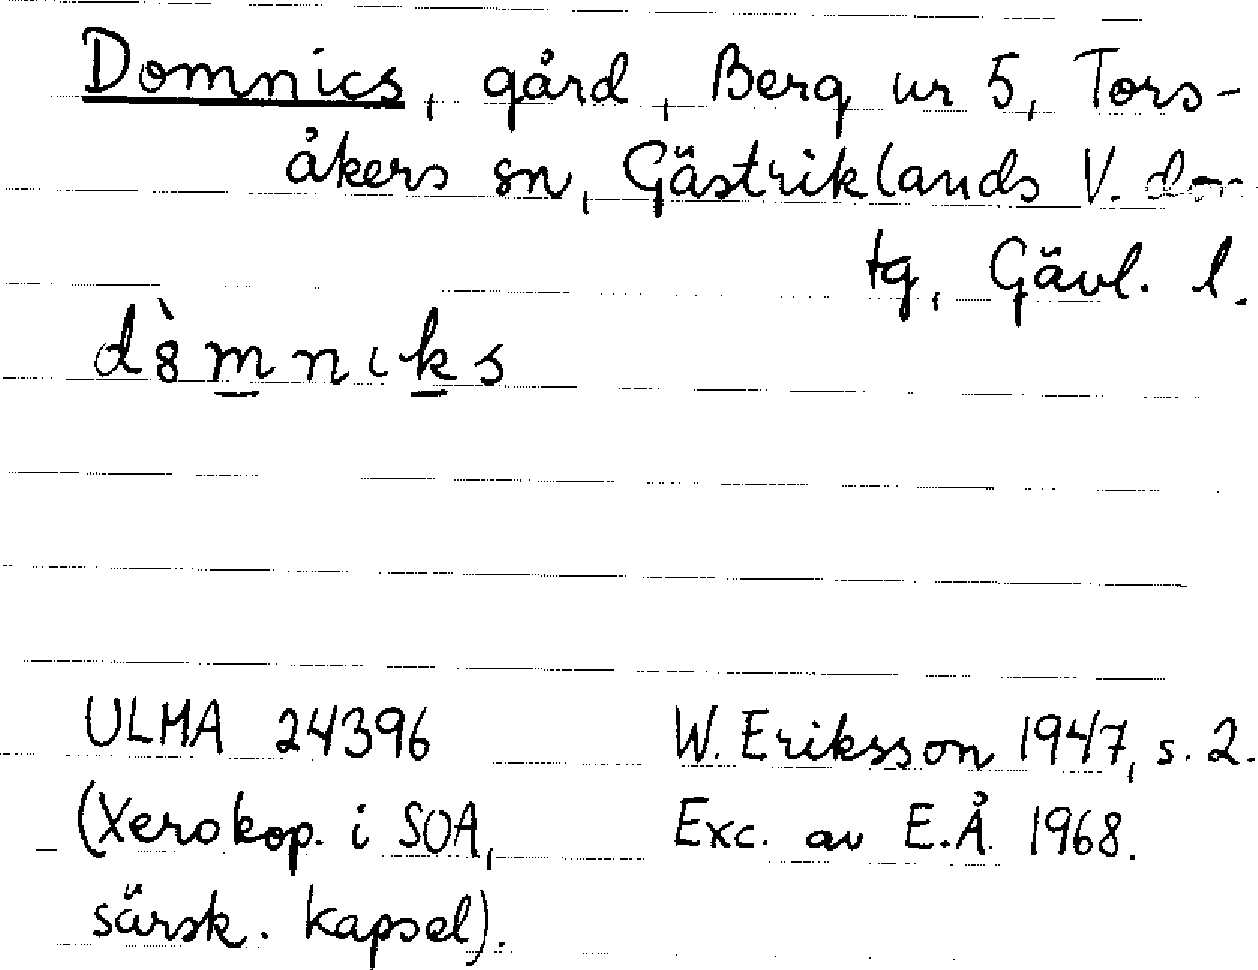 Domnics, gård, Berg nr 5, Tors-
åkers sn, Gästriklands V. dom-
tg, Gävl. l.
ULMA 24396 W. Eriksson 1947, s. 2.
(Xerokop. i SOA, Exc. av E.Å. 1968.
särsk. kapsel).